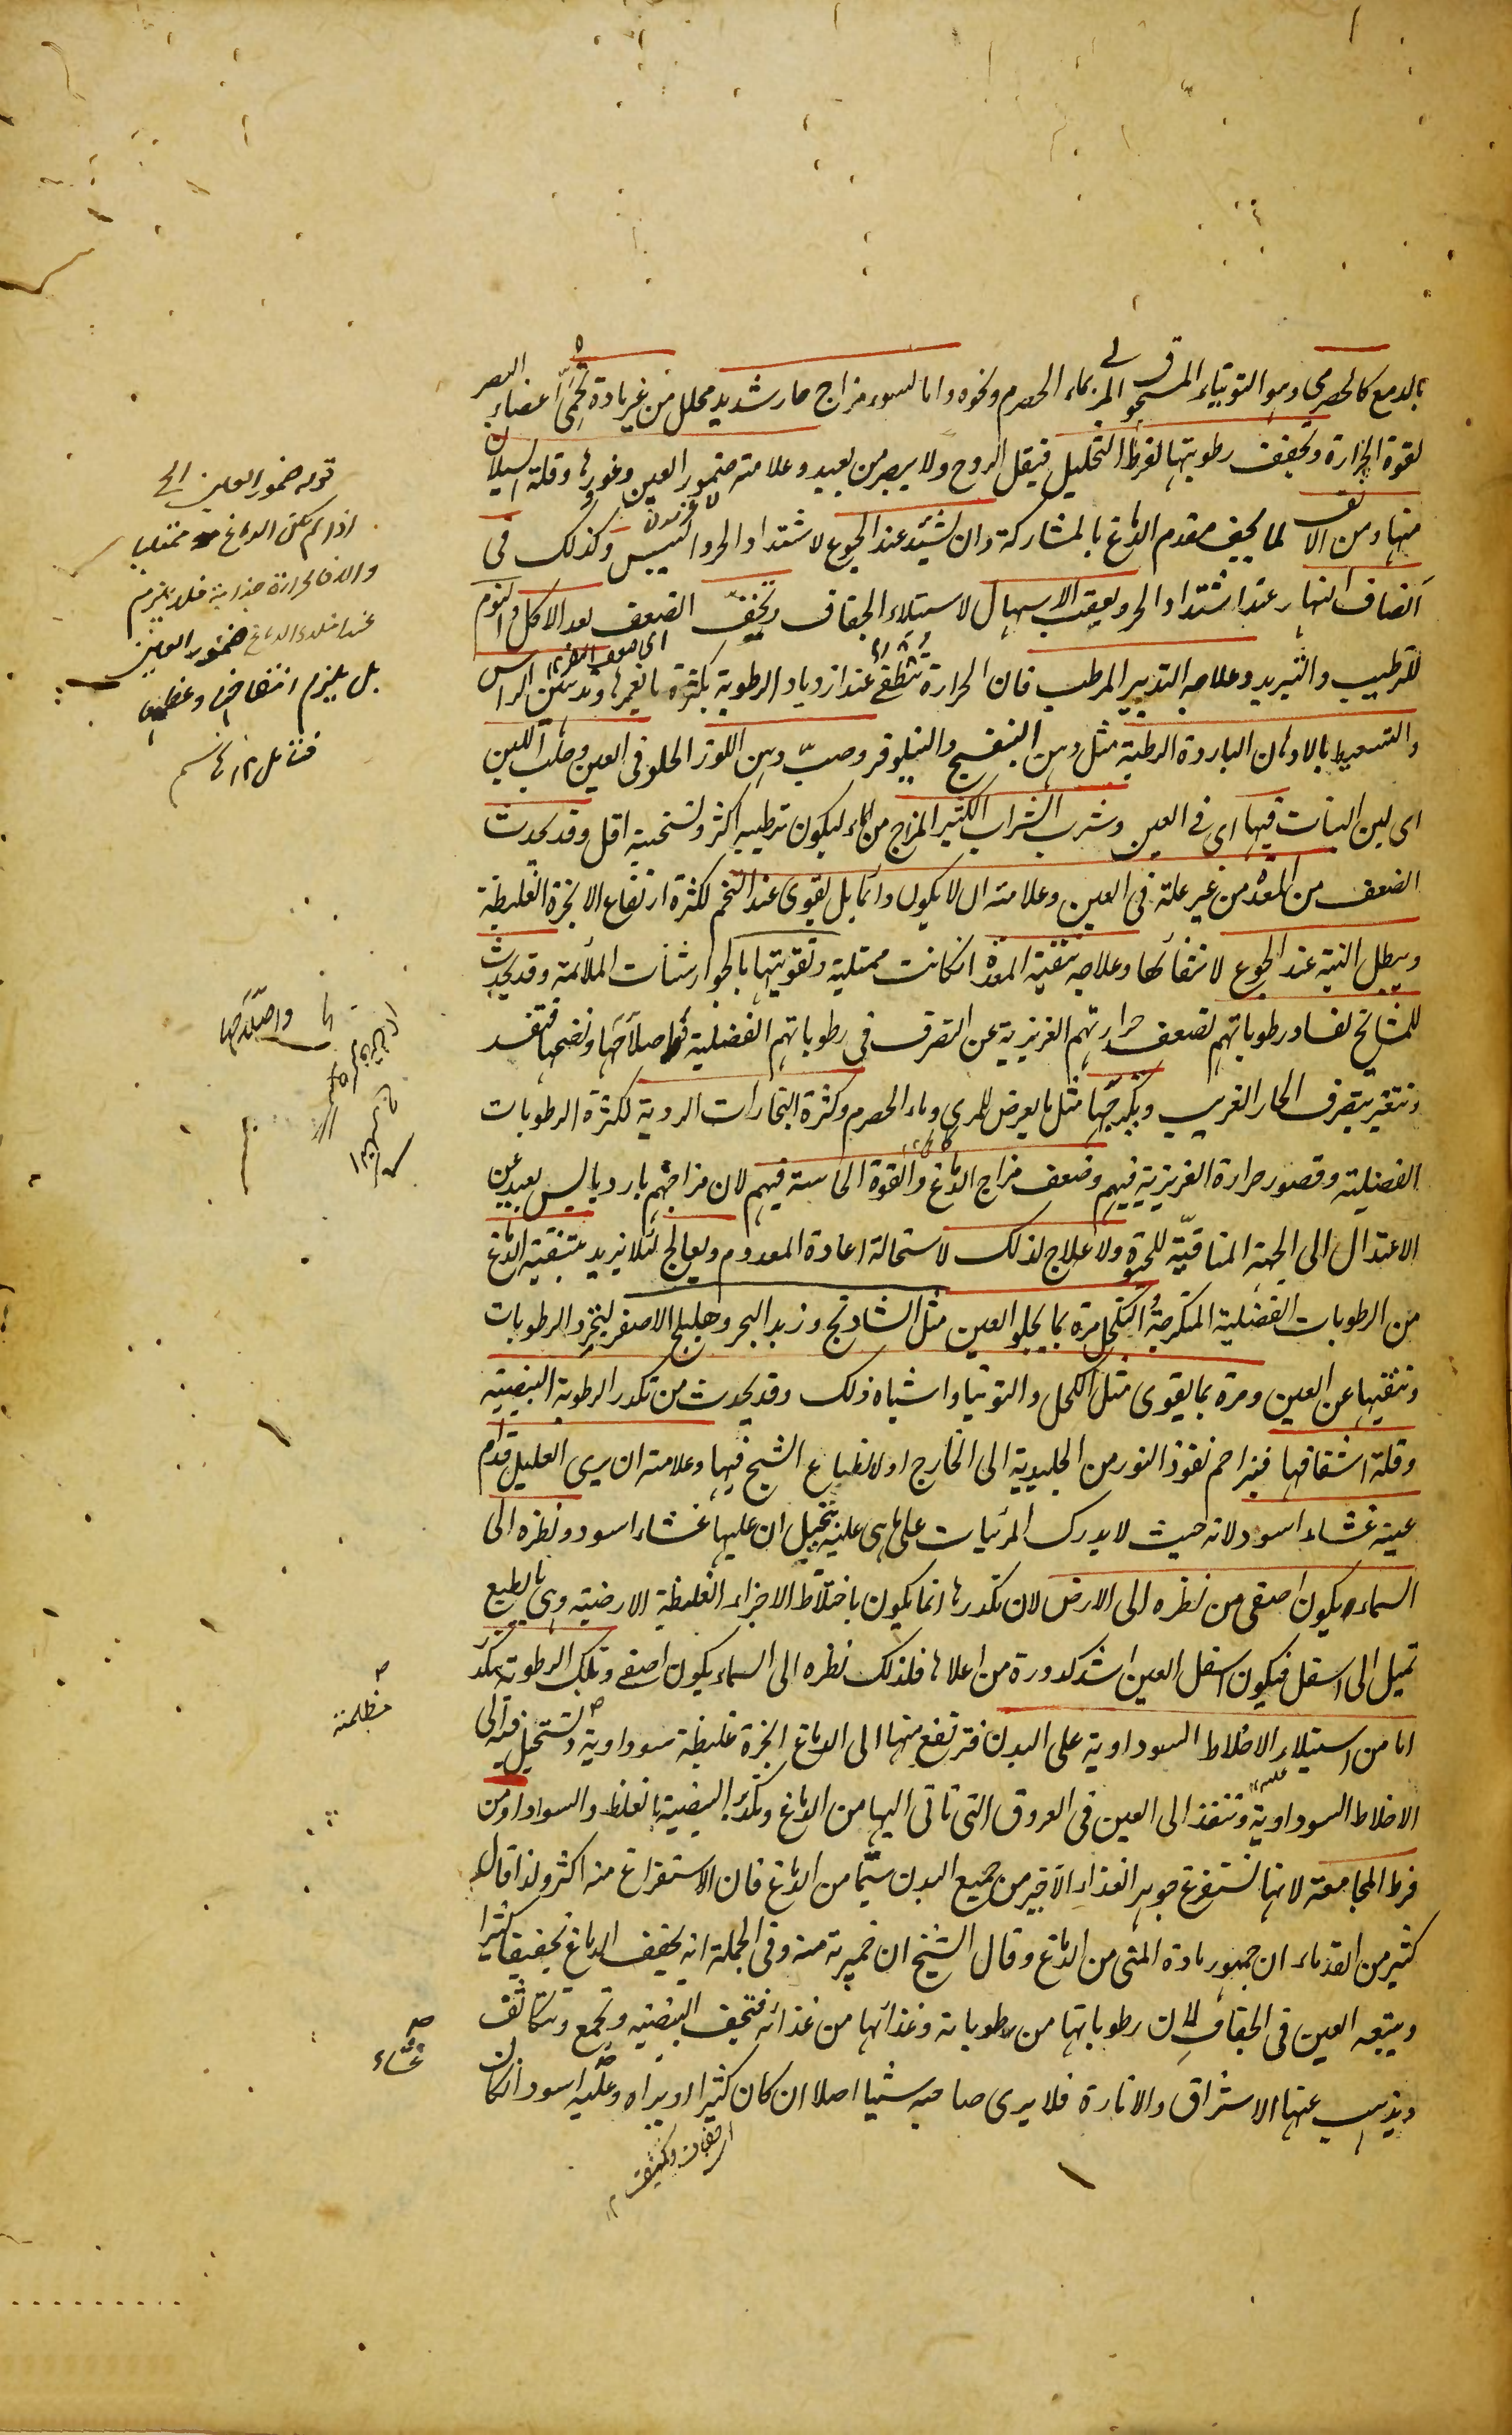 بالدمع كالحصرمى وهو التوتياء المسحوق المربى بماء الحصرم ونحوه واما لسوء مزاج حار شديد محلل من غير مادة تحمى اعضاء البصر
لقوة الحرارة وتجفف رطوبتها لفرط التحليل فيقل الروح ولا يبصر من بعيد وعلامته ضمور العين وغورها وقلة السيلان
منها ومن الانف لما يجف مقدم الدماغ بالمشاركة وان يشتد عند الجوع لاشتداد الحر واليبس وكذلك فى
انصاف النهار عند اشتداد الحر وبعقب الاسهال لاستيلاء الجفاف ويخف الضعف بعد الاكل والنوم
للترطيب والتبريد وعلاجه التدبير المرطب فان الحرارة تنطفئ عند ازدياد الرطوبة بكثرة ما يغمرها وتدهين الراس
والتسعيط بالادهان الباردة الرطبة مثل دهن البنفسج والنيلوفر وصب دهن اللوز الحلو فى العين وحلب اللبن
اى لبن البنات فيها اى فى العين وشرب الشراب الكثير المزاج من الماء ليكون ترطيبه اكثر وتسخينه اقل وقد يحدث
الضعف من المعدة من غير علة فى العين وعلامته ان لا يكون دائما بل يقوى عند التخم لكثرة ارتفاع الابخرة الغليظة
ويبطل البتة عند الجوع لانتفائها وعلاجه تنقية المعدة ان كانت ممتلية وتقويتها بالجوارشنات الملائمة وقد يحدث
للمشايخ لفساد رطوباتهم لضعف حرارتهم الغريزية عن التصرف فى رطوباتهم الفضلية واصلاحها ونضجها فتفسد
وتتغير بتصرف الحار الغريب وتكرجها مثل ما يعرض للمرى وماء الحصرم وكثرة البخارات الردية لكثرة الرطوبات
الفضلية وقصور حرارة الغريزية فيهم وضعف مزاج الدماغ والقوة الحاسة فيهم لان مزاجهم بارد يابس بعيد عن
الاعتدال الى الجهة المنافية للحيوة ولا علاج لذلك لاستحالة اعادة المعدوم ويعالج لئلا يزيد بتنقية الدماغ
من الرطوبات الفضلية المتكرجة والتكحل مرة بما يجلو العين مثل الشادنج وزبد البحر وهليلج الاصفر ليخرج الرطوبات
وتنقيها عن العين ومرة بما يقوى مثل الكحل والتوتيا واشباه ذلك وقد يحدث من تكدر الرطوبة البيضية
وقلة اشفافها فيزاحم نفوذ النور من الجليدية الى الخارج او لانطباع الشبح فيها وعلامته ان يرى العليل قدام
عينه غشاء اسود لانه حيث لا يدرك المرئيات على ما هى عليه يتخيل ان عليها غشاء اسود ونظره الى
السماء يكون اصفى من نظره الى الارض لان تكدرها انما يكون باختلاط الاجزاء الغليظة الارضية وهى بالطبع
تميل الى اسفل فيكون اسفل العين اشد كدورة من اعلاها فلذلك نظره الى السماء يكون اصفى وتلك الرطوبة تكدر
اما من استيلاء الاخلاط السوداوية على البدن فترتفع منها الى الدماغ ابخرة غليظة سوداوية وتستحيل فيه الى
الاخلاط السوداوية وتنفذ الى العين فى العروق التى تاتى اليها من الدماغ وتكدر البيضية بالغلظ والسواد او من
فرط المجامعة لانها تستفرغ جوهر الغذاء الاخير من جميع البدن سيما من الدماغ فان الاستفراغ منه اكثر ولذا قال
كثير من القدماء ان جمهور مادة المنى من الدماغ وقال الشيخ ان خميرته منه وفى الجملة انه يجفف الدماغ تجفيفا كثيرا
ويتبعه العين فى الجفاف لان رطوباتها من رطوباته وغذائها من غذائه فتجف البيضية وتجمع وتتكاثف
ويذهب عنها الاشراق والانارة فلا يرى صاحبه شيئا اصلا ان كان كثيرا او يراه وعليه اسود ان كان
قوله ضمور العين الخ
اذا لم يكن الدماغ ممتليا
والا فالحرارة جذابة فلا يلزم
عند امتلاء الدماغ ضمور العين
بل يلزم انتفاخها وعظمها
فتامل
واصلاحها
مظلمة
غشاء